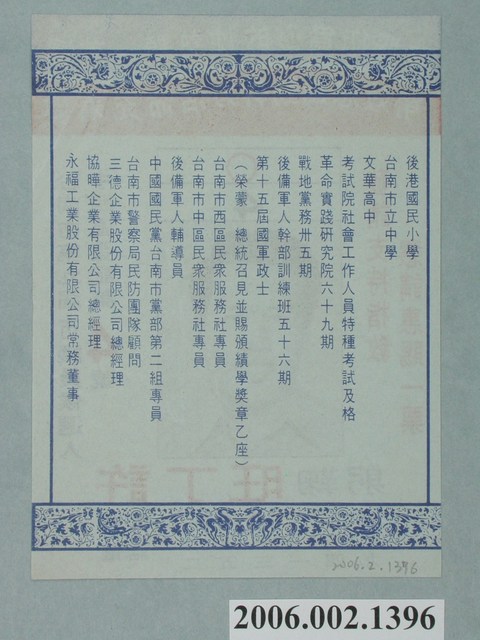 後港國民小學
台南市立中學
文華高中
考試院社會工作人員特種考試及格
革命實踐研究院六十九期
戰地黨務卅五期
後備軍人幹部訓練班五十六期
第十五屆國軍政士
（榮蒙　總統召見並賜頒績學獎章乙座）
台南市西區民衆服務社專員
台南市中區民衆服務社專員
後備軍人輔導員
中國國民黨台南市黨部第二組專員
台南市警察局民防團隊顧問
三德企業股份有限公司總經理
協曄企業有限公司總經理
永福工業股份有限公司常務董事
2006.2.1396
2006.002.1396